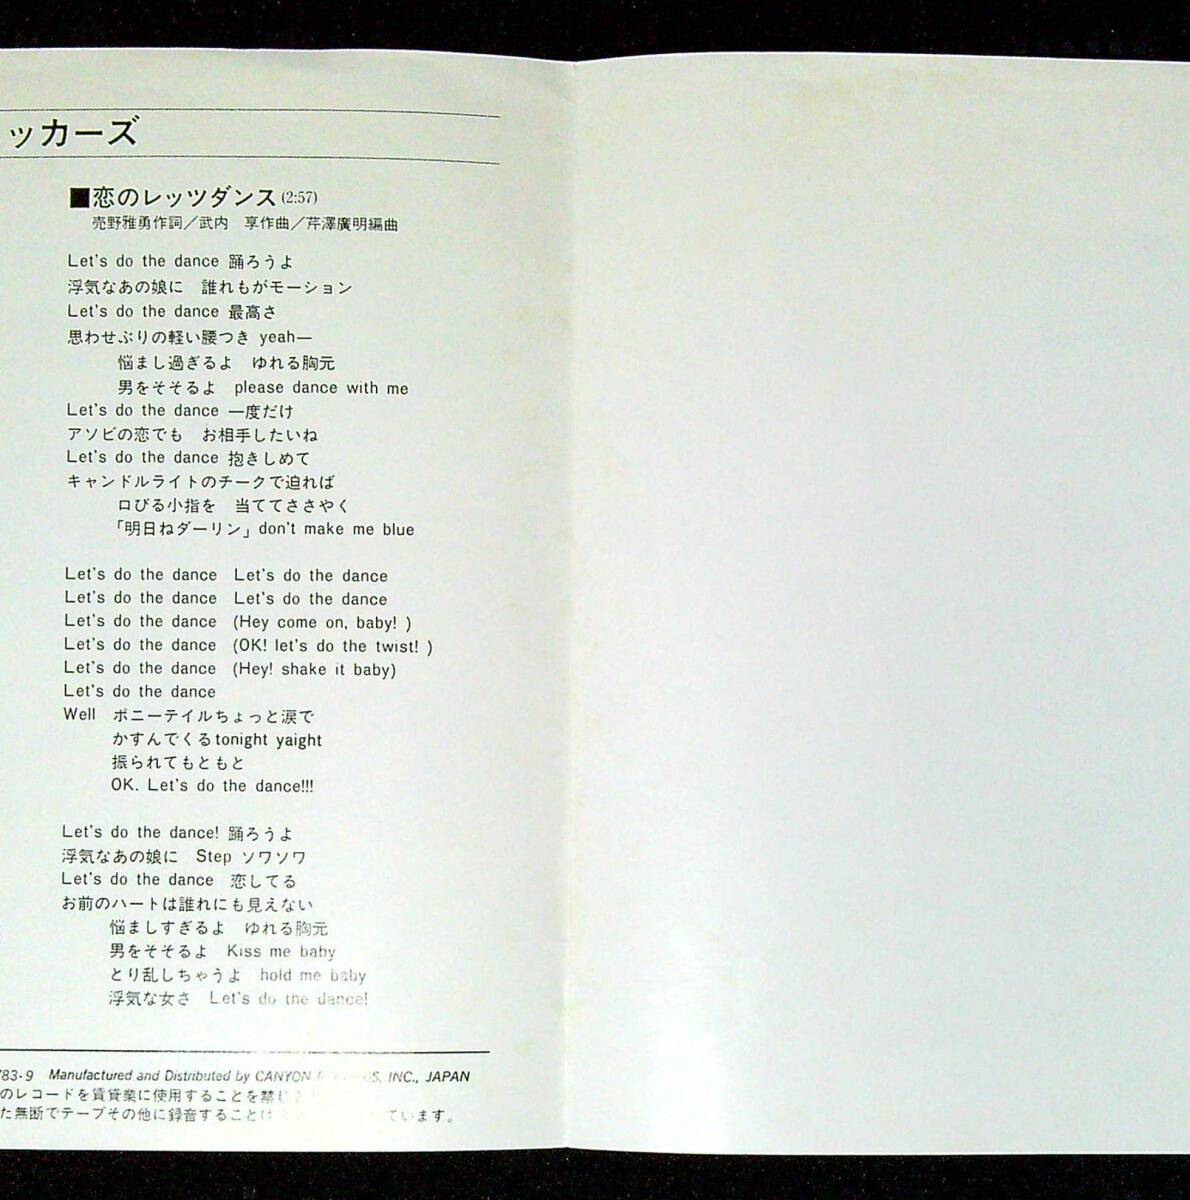 ッカーズ
■恋のレッツダンス(2:57)
売野雅勇作詞／武内　享作曲／芹澤廣明編曲
Let's do the dance 踊ろうよ
浮気なあの娘に　誰れもがモーション
Let's do the dance 最高さ
思わせぶりの軽い腰つき yeah—
悩まし過ぎるよ　ゆれる胸元
男をそそるよ　please dance with me
Let's do the dance 一度だけ
アソビの恋でも　お相手したいね
Let's do the dance 抱きしめて
キャンドルライトのチークで迫れば
口びる小指を　当ててささやく
「明日ねダーリン」don't make me blue
Let's do the dance　Let's do the dance
Let's do the dance　Let's do the dance
Let's do the dance　(Hey come on, baby! )
Let's do the dance　(OK! let's do the twist! )
Let's do the dance　(Hey! shake it baby)
Let's do the dance
Well　ポニーテイルちょっと涙で
かすんでくるtonight yaight
振られてもともと
OK. Let's do the dance!!!
Let's do the dance! 踊ろうよ
浮気なあの娘に　Step ソワソワ
Let's do the dance　恋してる
お前のハートは誰れにも見えない
悩ましすぎるよ　ゆれる胸元
男をそそるよ　Kiss me baby
とり乱しちゃうよ　hold me baby
浮気な女さ　Let's do the dance!
783-9　Manufactured and Distributed by CANYON INC., JAPAN
のレコードを賃貸業に使用することを禁じ
た無断でテープその他に録音することは ています。